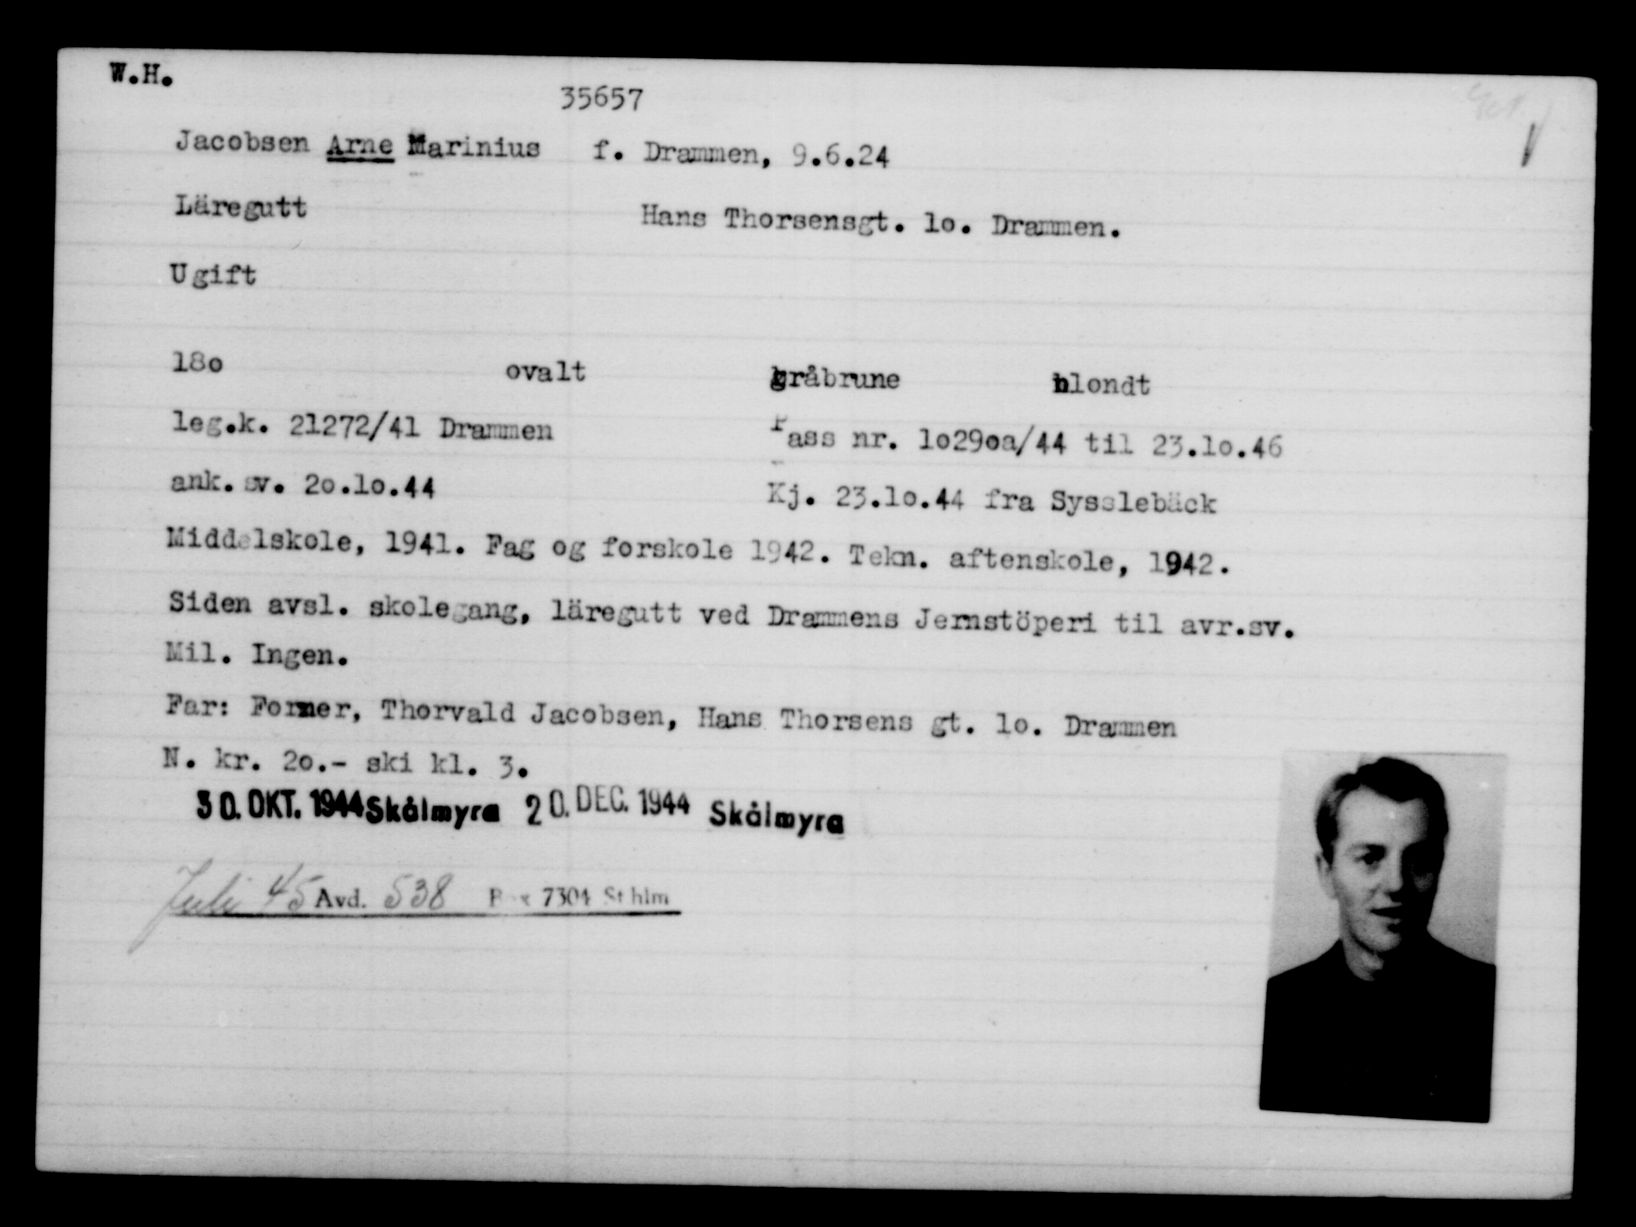 W.H.
35657
Jacobsen Arne Marinius f. Drammen, 9.6.24
Läregutt Hans Thorsensgt. 1o. Drammen.
Ugift
18o ovalt gråbrune blondt
leg.k. 21272/41 Drammen Pass nr. 1o29oa/44 til 23.1o.46
ank.sv. 2o.1o.44 Kj. 23.1o.44 fra Sysslebäck
Middelskole, 1941. Fag og forskole 1942. Tekn. aftenskole, 1942.
Siden avsl. skolegang, läregutt ved Drammens Jernstöperi til avr.sv.
Mil. Ingen.
Far: Former, Thorvald Jacobsen, Hans Thorsens gt. 1o. Drammen
N. kr. 2o.- ski kl. 3.
30. OKT. 1944 Skålmyra 20. DEC. 1944 Skålmyra
Juli 45 Avd. 538 Box 7304 Sthlm